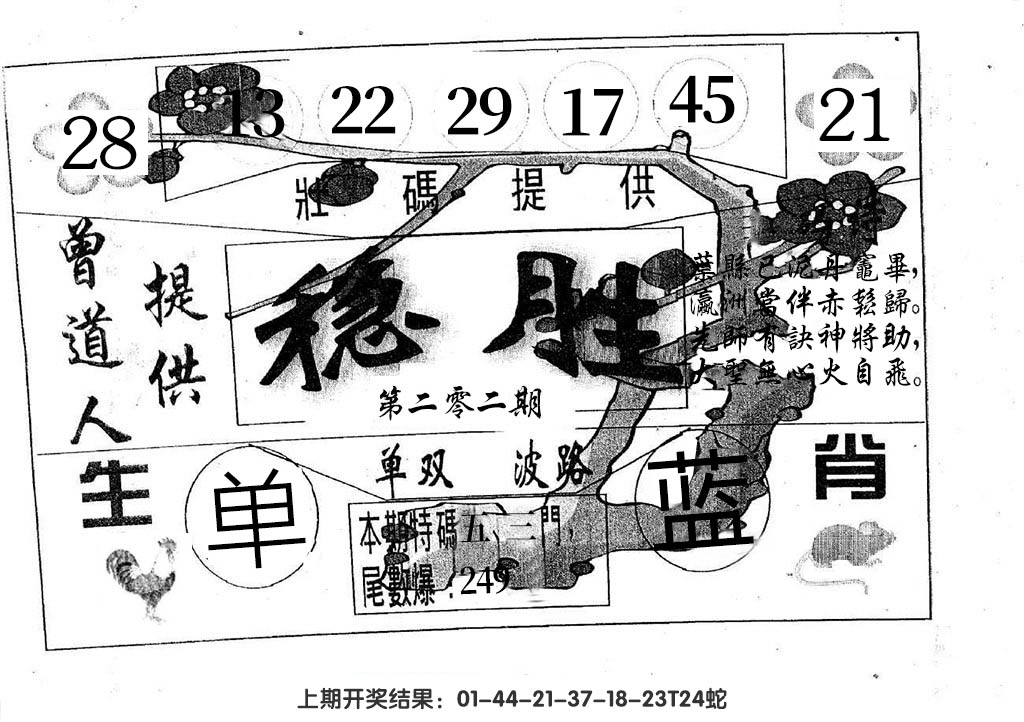 28 13 22 29 17 45 21
壯碼提供
特
曾道人
提供
穩胜
第二零二期
葉縣已泥丹竈畢，
瀛洲當伴赤鬆歸。
先師有訣神將助，
大聖無心火自飛。
单双 波路
生肖
单 蓝
本期特碼五、三門，
尾數爆：249
上期开奖结果：01-44-21-37-18-23T24蛇